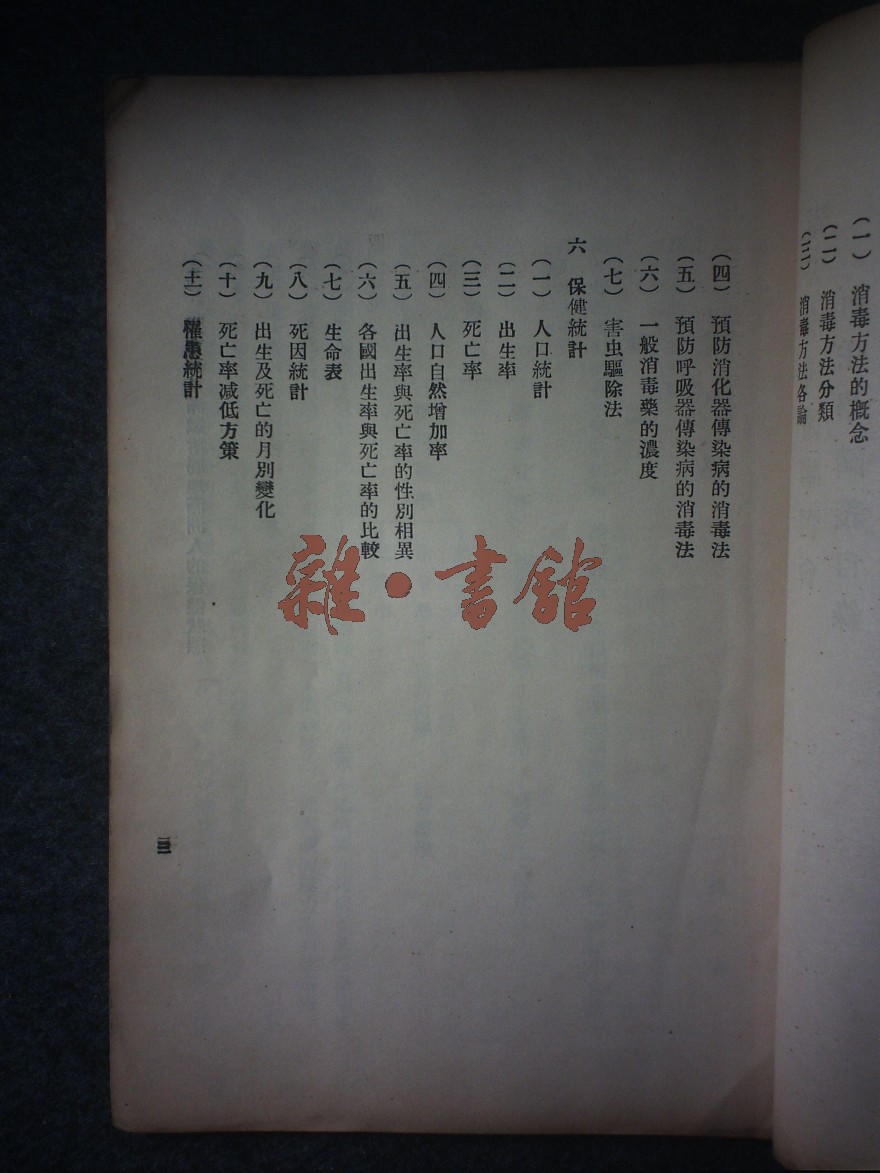 (一) 消毒方法的概念
(二) 消毒方法分類
(三) 消毒方法各論
(四) 預防消化器傳染病的消毒法
(五) 預防呼吸器傳染病的消毒法
(六) 一般消毒藥的濃度
(七) 害虫驅除法
六 保健統計
(一) 人口統計
(二) 出生率
(三) 死亡率
(四) 人口自然增加率
(五) 出生率與死亡率的性別相異
(六) 各國出生率與死亡率的比較
(七) 生命表
(八) 死因統計
(九) 出生及死亡的月別變化
(十) 死亡率減低方策
(十一) 罹患統計
雜·書館